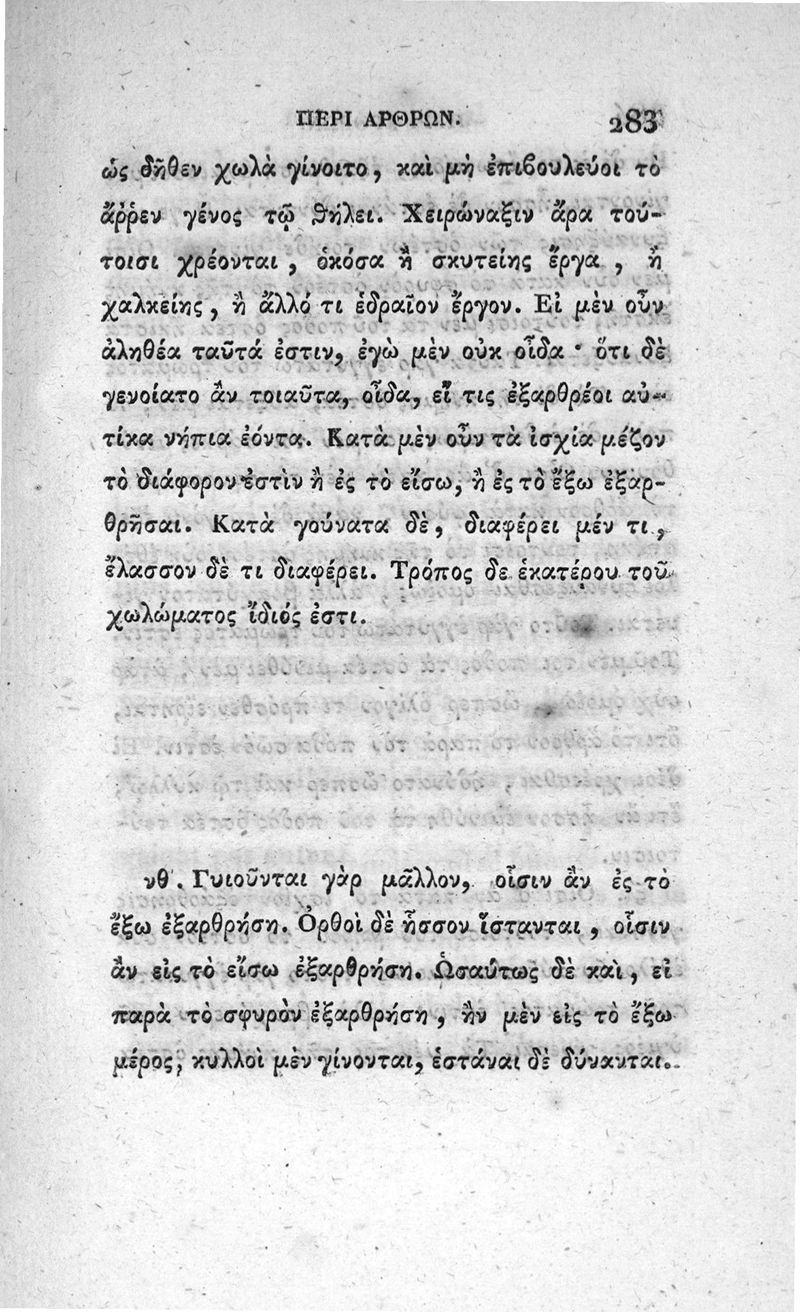 ΠΕΡΙ ΑΡΘΡΩΝ. 283
ὡς δῆθεν χωλὰ γίνοιτο, καὶ μὴ ἐπιϐουλεύοι τὸ
ἄῤῥεν γένος τῷ θήλει. Χειρώναξιν ἄρα τού-
τοισι χρέονται, ὁκόσα ἢ σκυτείης ἔργα, ἢ
χαλκείης, ἢ ἄλλό τι ἑδραῖον ἔργον. Εἰ μὲν οὖν
ἀληθέα ταῦτά ἐστιν, ἐγὼ μὲν οὐκ οἶδα · ὅτι δὲ
γενοίατο ἂν τοιαῦτα, οἶδα, εἴ τις ἐξαρθρέοι αὐ-
τίκα νήπια ἐόντα. Κατὰ μὲν οὖν τὰ ἰσχία μέζον
τὸ διάφορον ἐστὶν ἢ ἐς τὸ εἴσω, ἢ ἐς τὸ ἔξω ἐξαρ-
θρῆσαι. Κατὰ γούνατα δὲ, διαφέρει μέν τι,
ἔλασσον δὲ τι διαφέρει. Τρόπος δε ἑκατέρου τοῦ
χωλώματος ἴδιός ἐστι.
νθ΄. Γυιοῦνται γὰρ μᾶλλον, οἷσιν ἂν ἐς τὸ
ἔξω ἐξαρθρήσῃ. Ὀρθοὶ δὲ ἧσσον ἵστανται, οἷσιν
ἂν εἰς τὸ εἴσω ἐξαρθρήσῃ. Ὡσαύτως δὲ καὶ, εἰ
παρὰ τὸ σφυρὸν ἐξαρθρήσῃ, ἢν μὲν εἰς τὸ ἔξω
μέρος, κυλλοὶ μὲν γίνονται, ἑστάναι δὲ δύνανται.